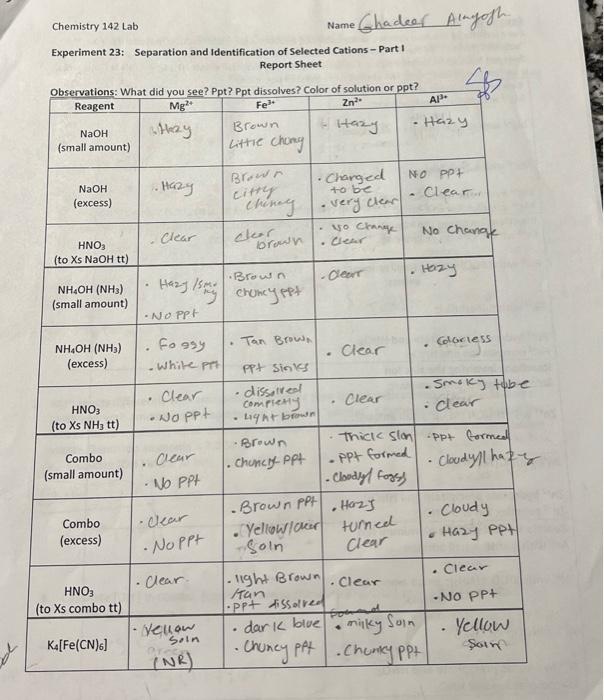 Chemistry 142 Lab
Name Ghadeer Alayofh
Experiment 23: Separation and Identification of Selected Cations – Part I
Report Sheet
Observations: What did you see? Ppt? Ppt dissolves? Color of solution or ppt?
Reagent Mg²⁺ Fe³⁺ Zn²⁺ Al³⁺
NaOH
(small amount)
· Hazy
Brown
Little chuncy
- Hazy
· Hazy
NaOH
(excess)
· Hazy
Brown
Litty
chuncy
· Changed
to be
· very clear
No PPt
· Clear
HNO₃
(to Xs NaOH tt)
· Clear
clear
brown
· No Change
· Clear
No Change
NH₄OH (NH₃)
(small amount)
· Hazy /smoky
· No PPt
· Brown
chuncy PPt
· Clear
· Hazy
NH₄OH (NH₃)
(excess)
· Foggy
· White PPt
· Tan Brown
PPt Sinks
· Clear
· Colorless
HNO₃
(to Xs NH₃ tt)
· Clear
· No PPt
· dissolved
completly
· Light brown
· Clear
· Smoky tube
· Clear
Combo
(small amount)
· Clear
· No PPt
· Brown
· Chuncy PPt
· Thick Slon
· PPt formed
· Cloudy/ foggy
· PPt formed
· Cloudy// hazy
Combo
(excess)
· Clear
· No PPt
· Brown PPt
· Yellow/clear
Soln
· Hazy
turned
Clear
· Cloudy
· Hazy PPt
HNO₃
(to Xs combo tt)
· Clear
· light Brown
/tan
· PPt dissolved
· Clear
· Clear
· No PPt
K₄[Fe(CN)₆]
· Yellow
Soln
(NR)
· dark blue
· Chuncy PPt
· milky Soln
· Chunky PPt
· Yellow
Soln